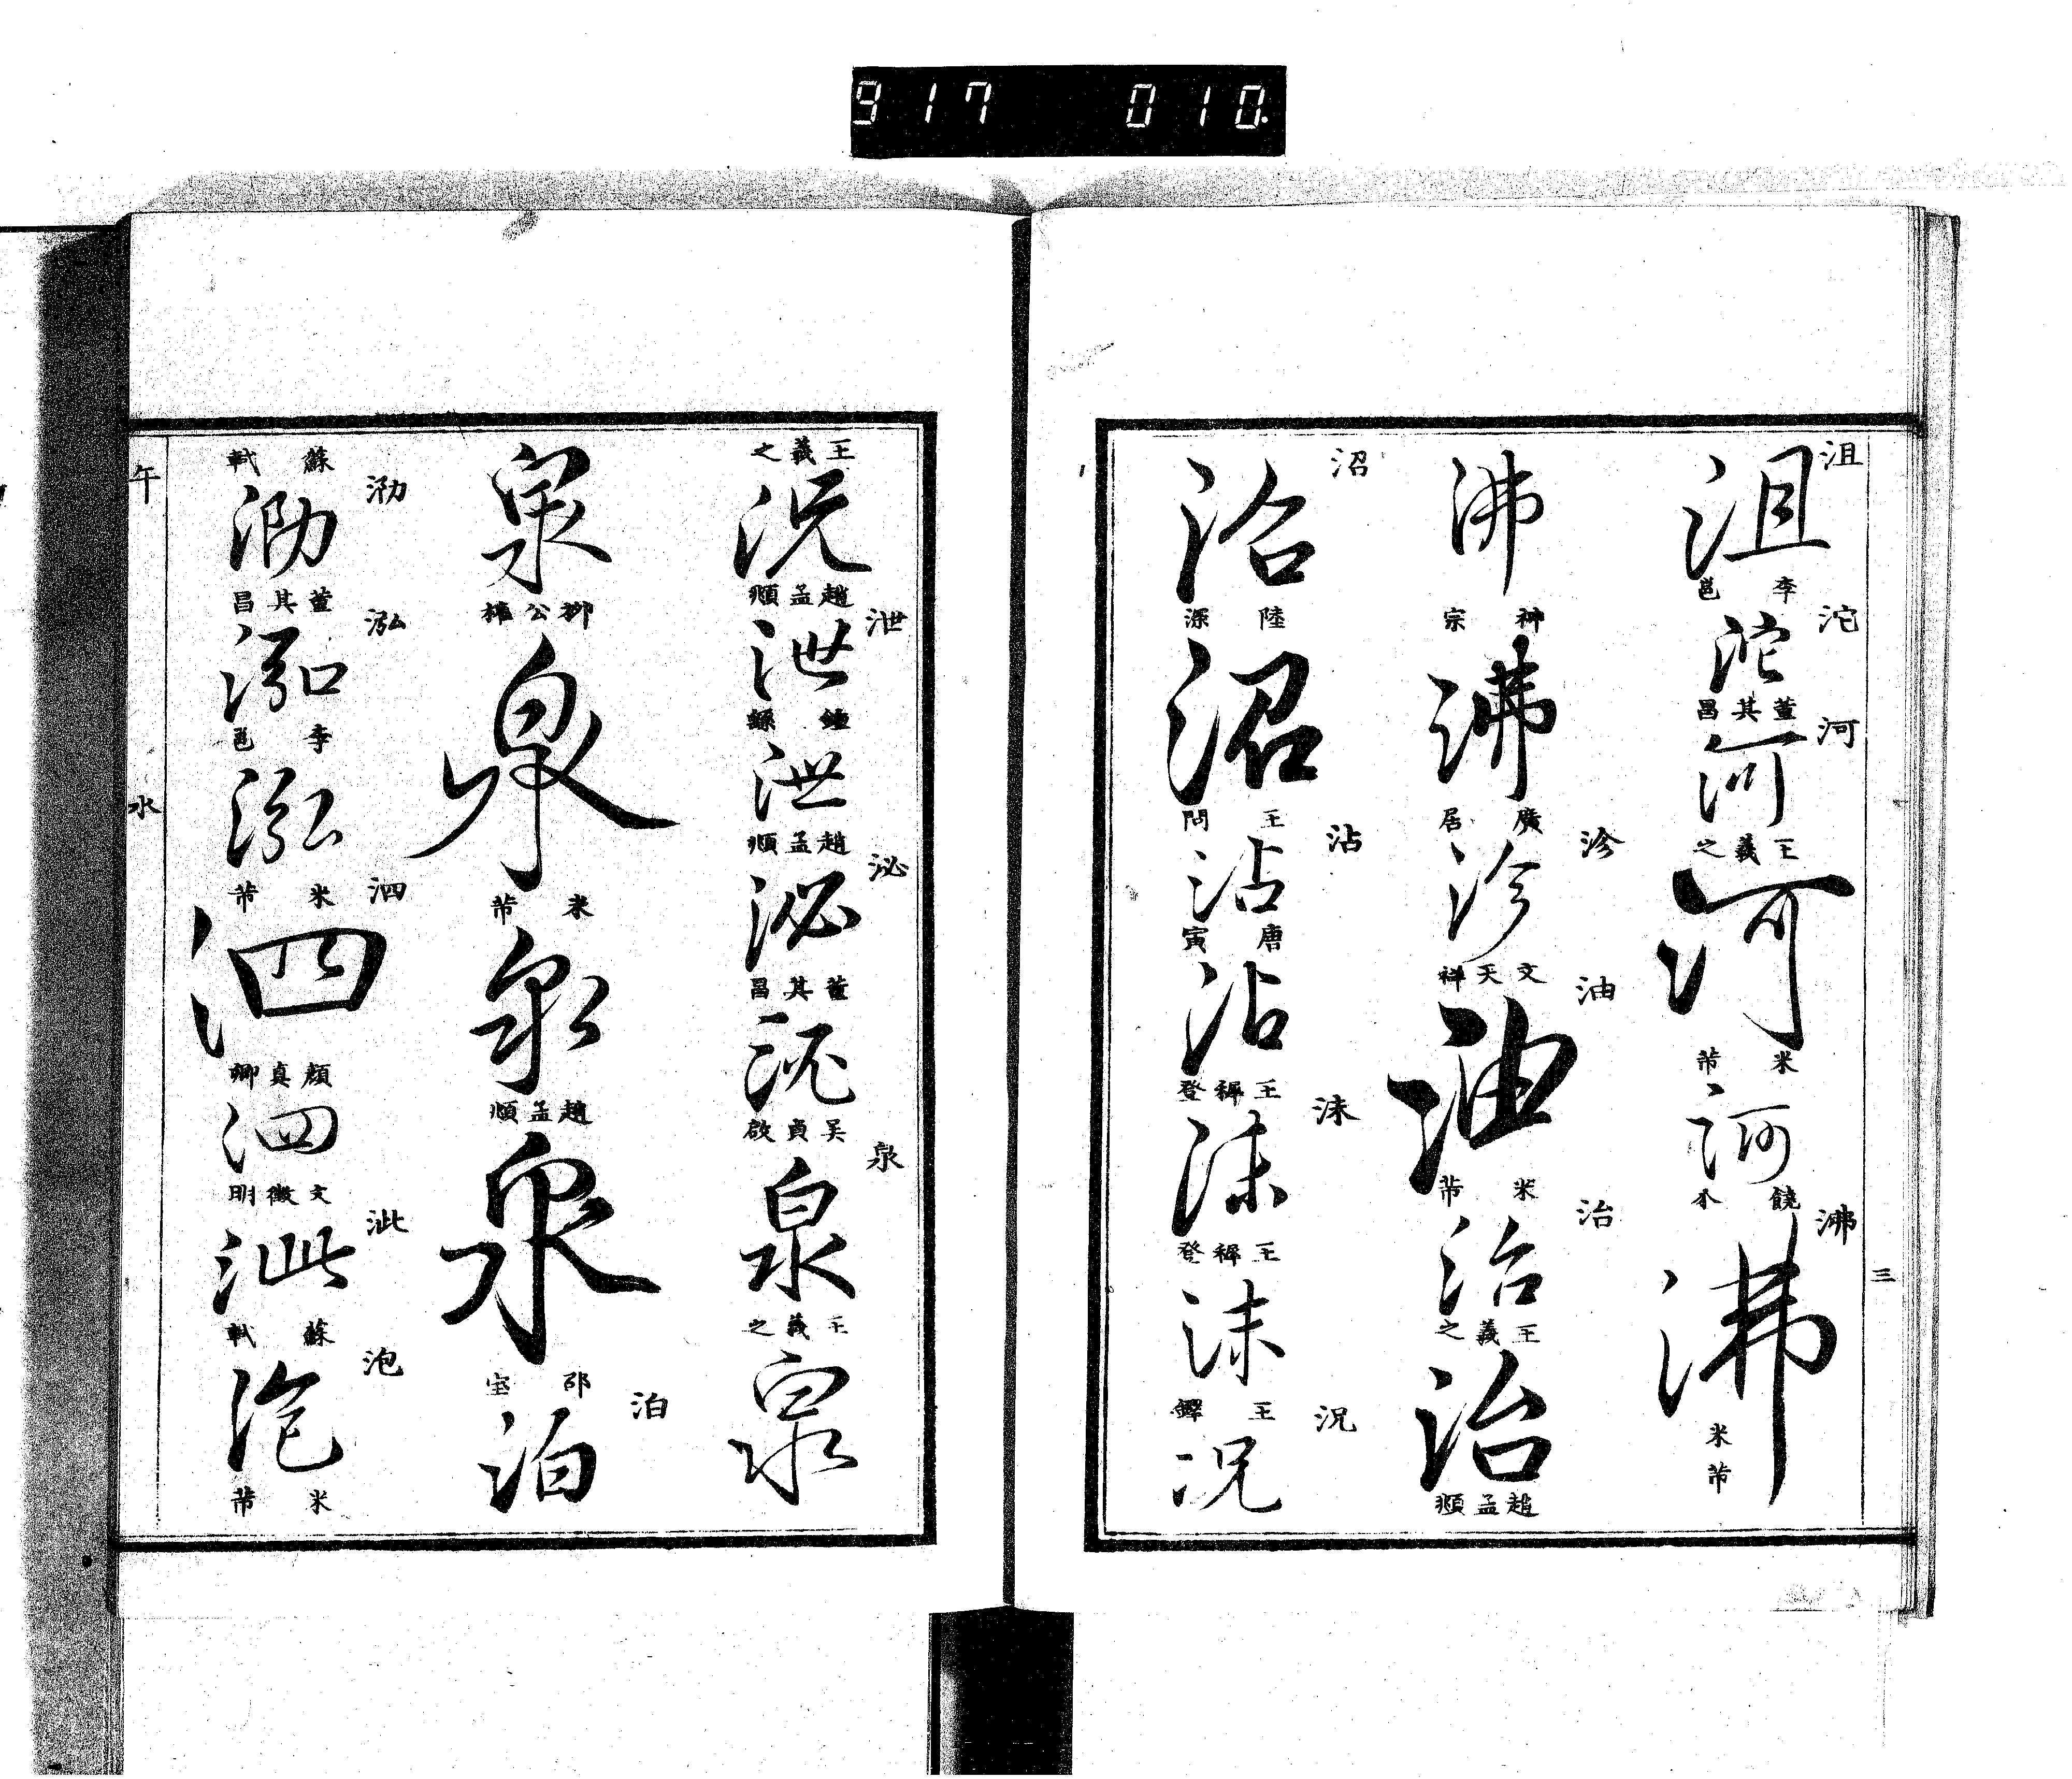 917 010.
三
沮
沮
李邕
沱
沱
董其昌
河
河
王羲之
河
米芾
河
饒介
沸
沸
米芾
沸
神宗
沸
康居
沴
沴
文天祥
油
油
米芾
治
治
王羲之
治
趙孟頫
沼
沼
陸深
沼
王問
沾
沾
唐寅
沾
王穉登
沫
沫
王穉登
沫
王鐸
況
況
王羲之
況
趙孟頫
泄
泄
鍾繇
泄
趙孟頫
泌
泌
董其昌
泌
吴貞啟
泉
泉
王羲之
泉
泉
柳公權
泉
米芾
泉
趙孟頫
泉
邵宝
泊
泊
蘇軾
泐
泐
董其昌
泓
泓
李邕
泓
米芾
泗
泗
顏真卿
泗
文徵明
泚
泚
蘇軾
泡
泡
米芾
午
水